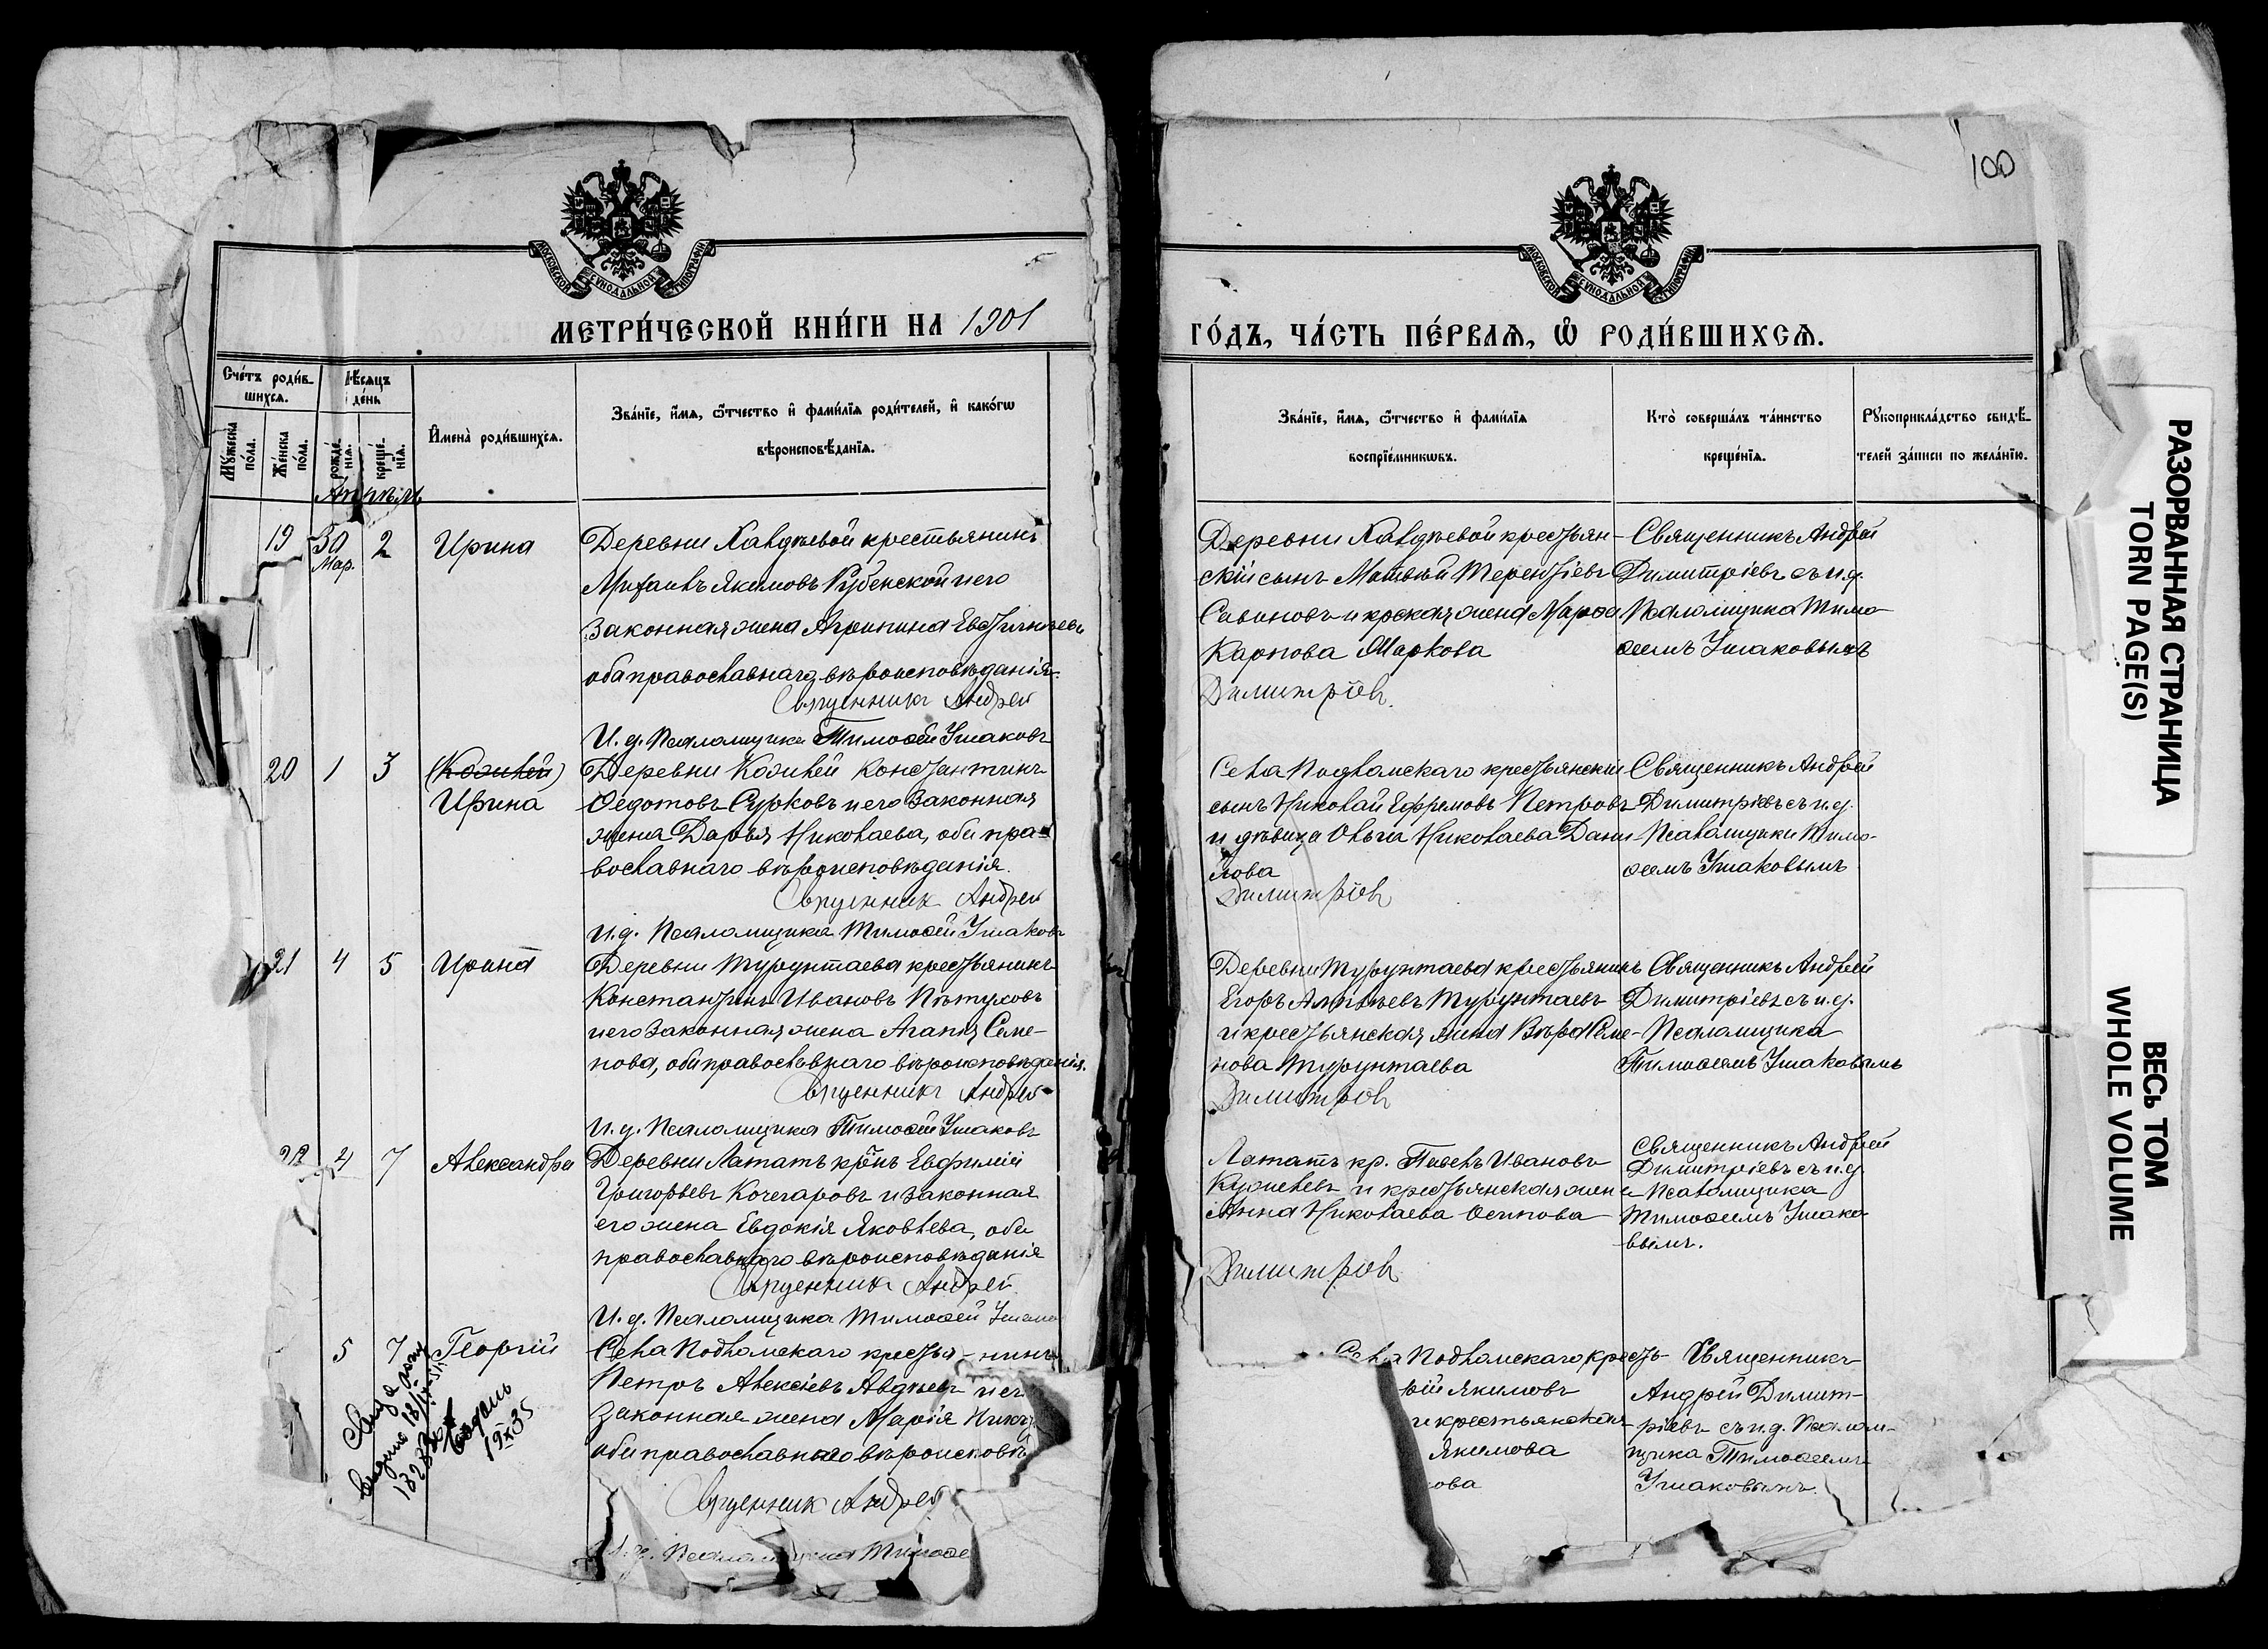 100
МОСКОВСКОЙ СѴНОДАЛЬНОЙ ТИПОГРАФІИ
МОСКОВСКОЙ СѴНОДАЛЬНОЙ ТИПОГРАФІИ
МЕТРИ́ЧЕСКОЙ КНИ́ГИ НА 1901
ГО́ДЪ, ЧА́СТЬ ПЕ́РВАѦ, Ѡ҆ РОДИ́ВШИХСѦ.
Сче́тъ роди́в-
шихсѧ.
Мꙋ́жеска по́ла.
Же́нска по́ла.
Мѣ́сѧцъ
де́нь
рожде́-нїѧ.
креще́-нїѧ.
И҆мена̀ роди́вшихсѧ.
Зва́нїе, и҆́мѧ, ѻ҆́тчество и҆ фами́лїѧ роди́телей, и҆ како́гѡ
вѣроисповѣ́данїѧ.
Зва́нїе, и҆́мѧ, ѻ҆́тчество и҆ фами́лїѧ
воспрїе́мникѡвъ.
Кто̀ соверша́лъ та́инство
креще́нїѧ.
Рꙋкоприкла́дство свидѣ́-
телей за́писи по жела́нїю.
Апрѣль
19 30 Мар. 2 Ирина
Деревни Халдѣевой крестьянинъ
Михаилъ Якимовъ Кубенской и его
законная жена Агрипина
оба православнаго вѣроисповѣданія.
Священникъ Андрей
И. д. Псаломщика Тимоѳей Ушаковъ
Деревни Халдѣевой крестьян-
скій сынъ Матвѣй Терентіевъ
Савиновъ и крская жена Марѳа
Карпова Маркова
Димитріевъ
Священникъ Андрей
Димитріевъ съ и.д.
Псаломщика Тимо-
ѳеемъ Ушаковымъ
20 1 3
Ирина
Деревни Кожлей Константинъ
Ѳедотовъ Сурковъ и его законная
жена Дарья Николаева, оба пра-
вославнаго вѣроисповѣданія.
Священникъ Андрей
И.д. Псаломщика Тимоѳей Ушаковъ
Села Подломскаго крестьянскій
сынъ Николай Ефремовъ Петровъ
и дѣвица Ольга Николаева Дани-
лова
Димитріевъ
Священникъ Андрей
Димитріевъ съ и.д.
Псаломщика Тимо-
ѳеемъ Ушаковымъ
21 4 5 Ирина
Деревни Турунтаева крестьянинъ
Константинъ Ивановъ Пѣтуховъ
и его законная жена Агапія Семе-
нова, оба православнаго вѣроисповѣданія.
Священникъ Андрей
И. д. Псаломщика Тимоѳей Ушаковъ
Деревни Турунтаева крестьянинъ
Егоръ Турунтаевъ
и крестьянская жена Вѣра Семе-
нова Турунтаева
Димитріевъ
Священникъ Андрей
Димитріевъ съ и.д.
Псаломщика
Тимоѳеемъ Ушаковымъ
22 4 7 Александра
Деревни Лататъ кр̃нъ Евфимій
Григорьевъ Кочегаровъ и законная
его жена Евдокія Яковлева, оба
православнаго вѣроисповѣданія
Священникъ Андрей
И. д. Псаломщика Тимоѳей
Лататъ кр. Павелъ Ивановъ
и крестьянская жена
Анна Николаева Осипова
Димитріевъ
Священникъ Андрей
Димитріевъ съ и.д.
Псаломщика
Тимоѳеемъ Ушако-
вымъ.
5 7 Георгій
Села Подломскаго крестья-нинъ
Петръ Алексіевъ Авдѣевъ и его
законная жена Марія
оба православнаго
Священникъ Андрей
Псаломщика
Села Подломскаго кресть-
Якимовъ
и крестьянская
Якимова
ова
Священникъ
Андрей Димит-
ріевъ съ и.д. Псалом-
щика Тимоѳеемъ
Ушаковымъ.
РАЗОРВАННАЯ СТРАНИЦА
TORN PAGE(S)
ВЕСЬ ТОМ
WHOLE VOLUME